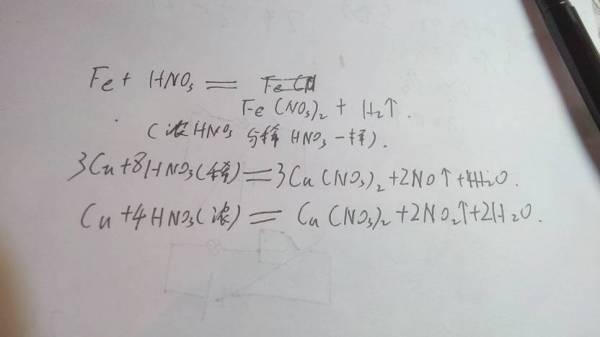 Fe + HNO₃ =
Fe(NO₃)₂ + H₂↑.
(浓HNO₃ 与稀HNO₃一样).
3Cu+8HNO₃(稀)=3Cu(NO₃)₂+2NO↑+4H₂O.
Cu+4HNO₃(浓)=Cu(NO₃)₂+2NO₂↑+2H₂O.